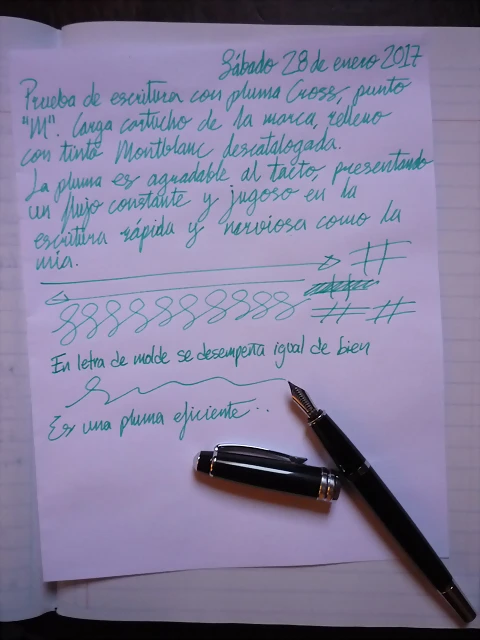 Sábado 28 de enero 2017
Prueba de escritura con pluma Cross, punto
"M". Carga cartucho de la marca, relleno
con tinta Montblanc descatalogada.
La pluma es agradable al tacto, presentando
un flujo constante y jugoso en la
escritura rápida y nerviosa como la
mía.
En letra de molde se desempeña igual de bien
Es una pluma eficiente...